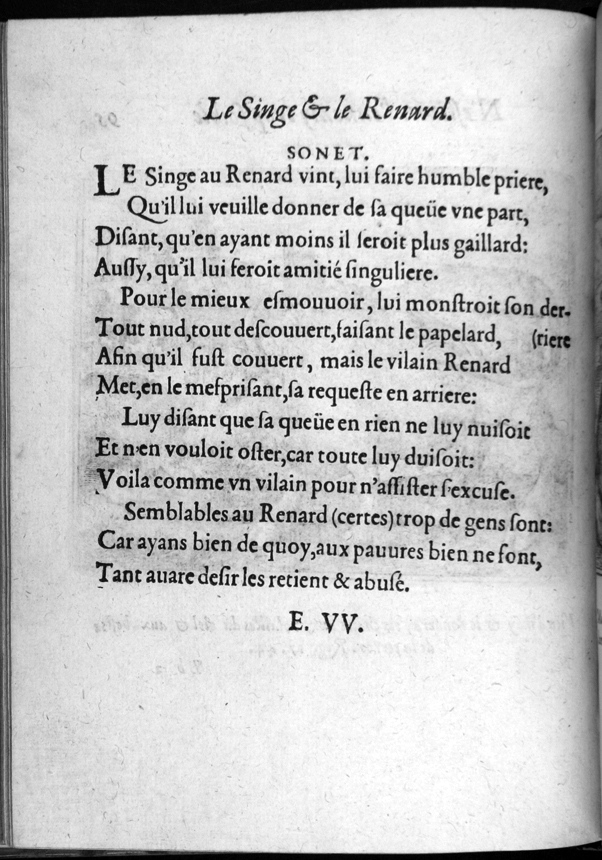 Le Singe & le Renard.
SONET.
LE Singe au Renard vint, lui faire humble priere,
Qu'il lui veuille donner de ſa queüe vne part,
Diſant, qu'en ayant moins il ſeroit plus gaillard:
Auſſy, qu'il lui feroit amitié ſinguliere.
Pour le mieux eſmouuoir, lui monſtroit ſon der-
Tout nud, tout deſcouuert, faiſant le papelard, (riere
Afin qu'il fuſt couuert, mais le vilain Renard
Met, en le meſpriſant, ſa requeſte en arriere:
Luy diſant que ſa queüe en rien ne luy nuiſoit
Et n'en vouloit oſter, car toute luy duiſoit:
Voila comme vn vilain pour n'aſſiſter ſ'excuſe.
Semblables au Renard (certes) trop de gens ſont:
Car ayans bien de quoy, aux pauures bien ne font,
Tant auare deſir les retient & abuſe.
E. VV.